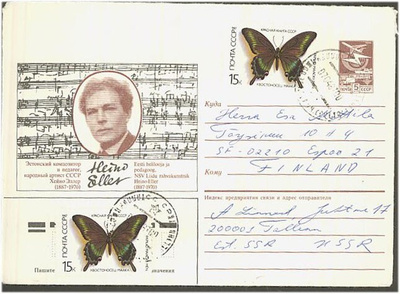 КРАСНАЯ КНИГА СССР
ПОЧТА СССР
15к
ХВОСТОНОСЕЦ МААКА
ПОЧТА СССР
Куда
Herra
10
SF-02210 Espoo 21
FINLAND
Кому
Эстонский композитор
и педагог,
народный артист СССР
Хейно Эллер
(1887-1970)
Heino
Eller
Eesti helilooja ja
pedagoog,
NSV Liidu rahvakunstnik
Heino Eller
(1887-1970)
Индекс предприятия связи и адрес отправителя
17
200005 Tallinn
Est. SSR USSR
ПОЧТА СССР
15к
ХВОСТОНОСЕЦ МААКА
Пишите
назначения